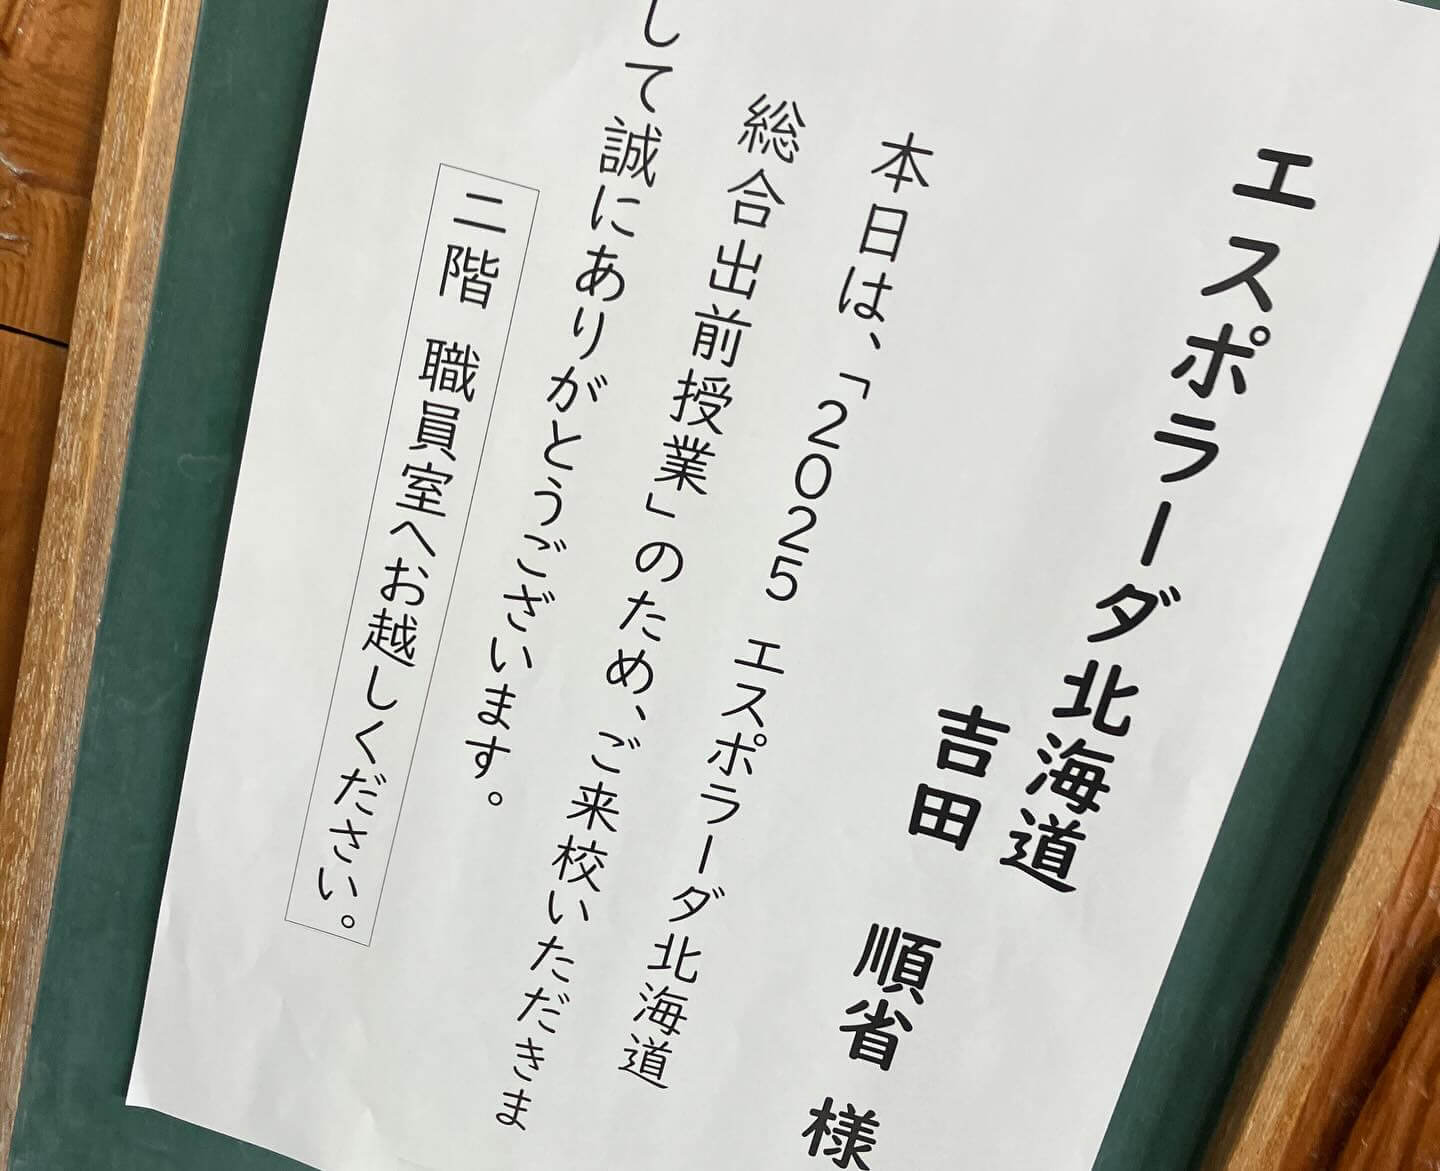 エスポラーダ北海道
吉田 順省 様
本日は、「2025 エスポラーダ北海道
総合出前授業」のため、ご来校いただきま
して誠にありがとうございます。
二階 職員室へお越しください。